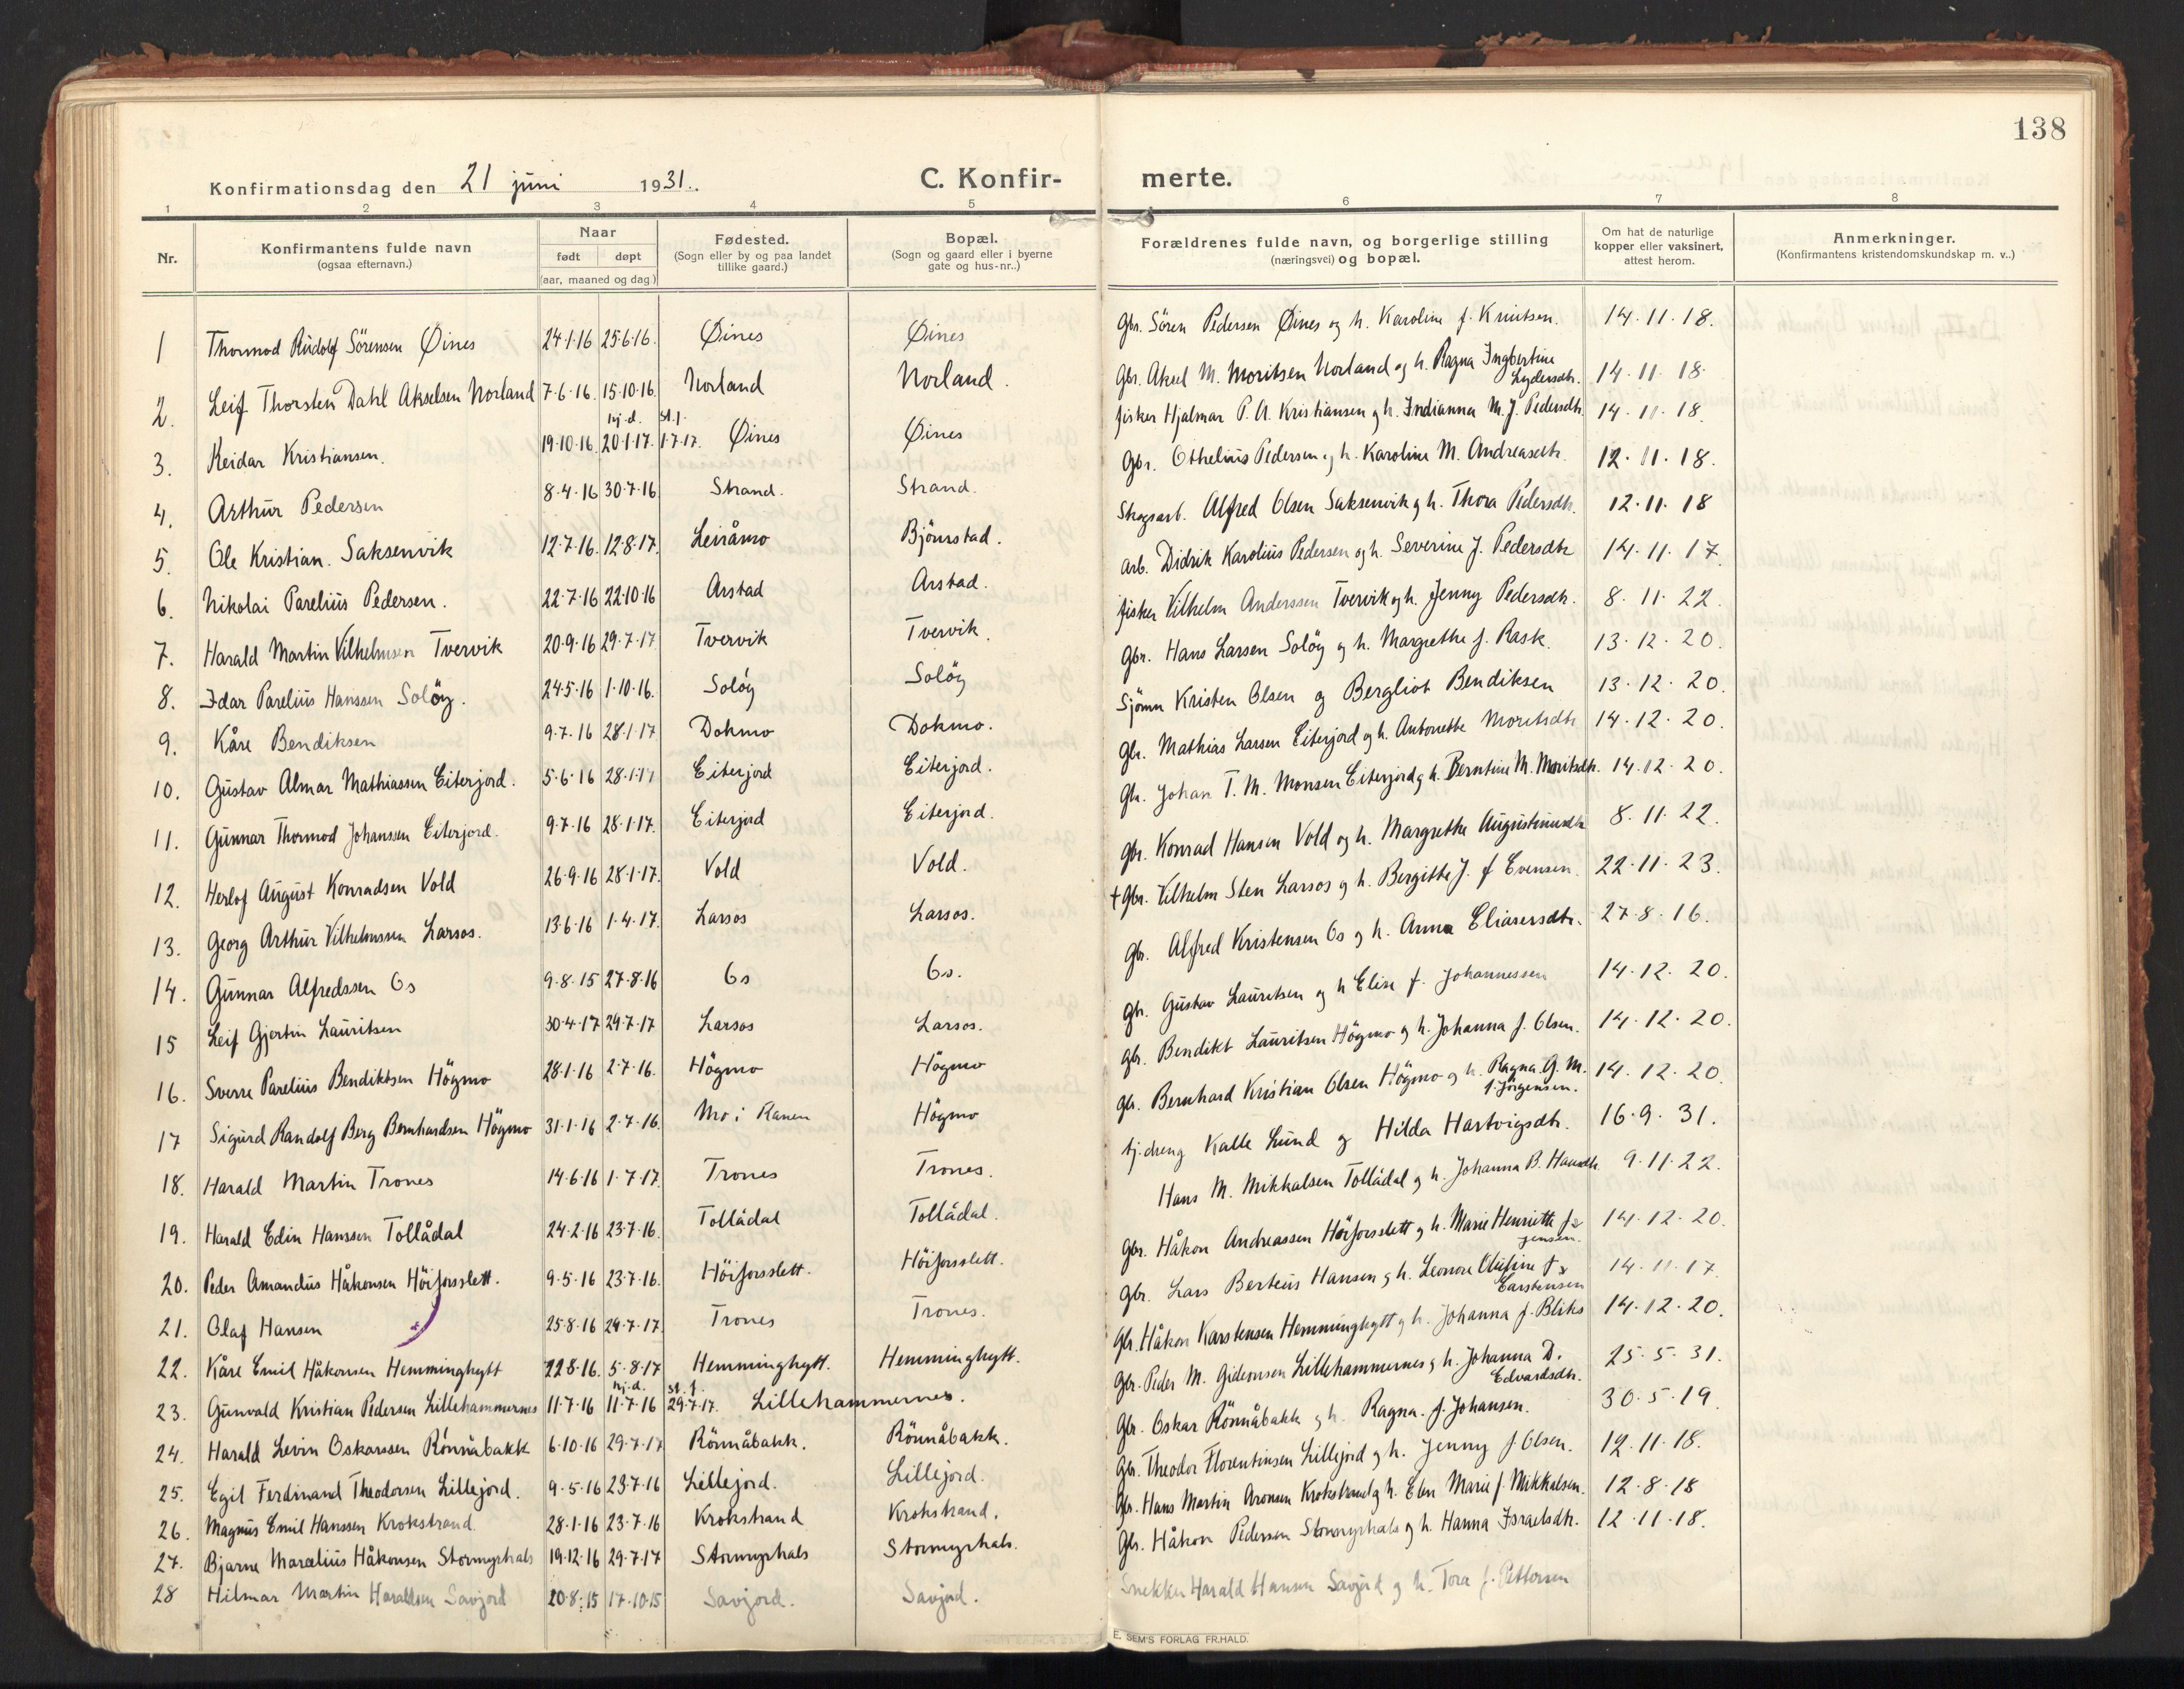 138
Konfirmationsdag den 21 juni 1931.
C. Konfir- merte.
1 2 3 4 5 6 7 8
Nr.
Konfirmantens fulde navn
(ogsaa efternavn.)
Naar
født døpt
(aar, maaned og dag)
Fødested.
(Sogn eller by og paa landet
tillike gaard.)
Bopæl.
(Sogn og gaard eller i byerne
gate og hus-nr..)
Forældrenes fulde navn, og borgerlige stilling
(næringsvei) og bopæl.
Om hat de naturlige
kopper eller vaksinert,
attest herom.
Anmerkninger.
(Konfirmantens kristendomskundskap m. v..)
1 Thormod Rudolf Sörensen Øines 24·1·16 25·6·16. Øines Øines Gbr. Sören Pedersen Øines og h. Karoline f. Knutsen. 14·11·18.
2. Leif Thorsten Dahl Akselsen Norland 7·6·16. 15·10·16. Norland Norland. Gbr. Aksel M. Moritsen Norland og h. Ragna Ingbertine Lydersdtr. 14·11·18.
3. Reidar Kristiansen. 19·10·16 hj.d. 20·1·17. st.f. 1·7·17. Øines Øines fisker Hjalmar P. A. Kristiansen og h. Indianna M. J. Pedersdtr. 14·11·18.
4. Arthur Pedersen 8·4·16 30·7·16 Strand. Strand. Gbr. Othelius Pedersen og h. Karoline M. Andreasdtr. 12·11·18.
5. Ole Kristian. Saksenvik 12·7·16. 12·8·17. Leiråmo Bjönnstad. Skogsarb. Alfred Olsen Saksenvik og h. Thora Pedersdtr. 12·11·18
6. Nikolai Parelius Pedersen. 22·7·16 22·10·16 Arstad Arstad. arb. Didrik Karolius Pedersen og h. Severine J. Pedersdtr 14·11·17.
7. Harald Martin Vilhelmsen Tvervik 20·9·16 29·7·17 Tvervik Tvervik. fisker Vilhelm Anderssen Tvervik og h. Jenny Pedersdtr. 8·11·22.
8. Idar Parelius Hanssen Solöy. 24·5·16 1·10·16. Solöy Solöy Gbr. Hans Larsen Solöy og h. Margrethe f. Rask. 13·12·20.
9. Kåre Bendiksen 9·7·16 28·1·17 Dokmo Dokmo. Sjömn Kristen Olsen og Bergliot Bendiksen 13·12·20.
10. Gustav Almar Mathiassen Eiterjord. 5·6·16 28·1·17 Eiterjord Eiterjord. Gbr. Mathias Larsen Eiterjord og h. Antonette Moritsdtr 14·12·20.
11. Gunnar Thormod Johanssen Eiterjord. 9·7·16 28·1·17. Eiterjord Eiterjord. Gbr. Johan T. M. Monsen Eiterjord og h. Berntine M. Moritsdtr. 14·12·20.
12. Herlof August Konradsen Vold 26·9·16 28·1·17. Vold Vold. Gbr. Konrad Hansen Vold og h. Margrethe Augustinusdtr 8·11·22.
13. Georg Arthur Vilhelmssen Larsos. 13·6·16 1·4·17. Larsos Larsos. + Gbr. Vilhelm Sten Larsos og h. Bergitte J. f Evensen. 22·11·23.
14. Gunnar Alfredssen Os 9·8·15 27·8·16 Os Os. Gbr. Alfred Kristensen Os og h. Anna Eliasersdtr. 27·8·16.
15 Leif Gjertin Lauritsen 30·4·17 29·7·17 Larsos Larsos. Gbr. Gustav Lauritsen og h Elise f. Johannessen 14·12·20.
16. Sverre Parelius Bendiktsen Högmo 28·1·16 2·7·16. Högmo Högmo Gbr. Bendikt Lauritsen Högmo og h. Johanna f. Olsen. 14·12·20.
17 Sigurd Randolf Berg Bernhardsen Högmo 31·1·16 2·7·16. Mo i Ranen Högmo Gbr. Bernhard Kristian Olsen Högmo og h. Ragna G. M. f. Jörgensen. 14·12·20.
18. Harald Martin Trones 14·6·16 1·7·17. Trones Trones. tj.dreng Kalle Lund og Hilda Hartvigsdtr. 16·9·31.
19. Harald Edin Hanssen Tollådal 24·2·16 23·7·16. Tollådal Tollådal. Hans M. Mikkalsen Tollådal og h. Johanna B. Hansdtr 9·11·22.
20. Peder Amandus Håkonsen Höiforsslett. 9·5·16 23·7·16. Höiforsslett. Höiforsslett. Gbr. Håkon Andreassen Höiforsslett og h. Marie Henriette f. Jensen. 14·12·20.
21. Olaf Hansen 25·8·16 29·7·17. Trones Trones. Gbr. Lars Berteus Hansen og h. Leonore f. Carstensen 14·11·17.
22. Kåre Emil Håkonsen Hemminghytt 22·8·16. 5·8·17 Hemminghytt. Hemminghytt. Gbr. Håkon Karstensen Hemminghytt og h. Johanna f. Bliks 14·12·20.
23. Gunvald Kristian Pedersen Lillehammernes 11·7·16 hj.d. 11·7·16 st.f. 29·7·17. Lillehammernes. Gbr. Peder M. Gideonsen Lillehammernes og h. Johanna D. Edvardsdtr. 25·5·31.
24. Harald Levin Oskarssen Rönnåbakk 6·10·16 29·7·17 Rönnåbakk. Rönnåbakk. Gbr. Oskar Rönnåbakk og h. Ragna. f. Johansen. 30·5·19.
25. Egil Ferdinand Theodorsen Lillejord. 9·5·16 23·7·16 Lillejord. Lillejord. Gbr. Theodor Florentinsen Lillejord og h. Jenny f. Olsen. 12·11·18.
26. Magnus Emil Hanssen Krokstrand 28·1·16 23·7·16 Krokstrand Krokstrand. Gbr. Hans Martin Aronsen Krokstrand og h. Elen Marie f. Mikkelsen. 12·8·18
27. Bjarne Marcelius Håkonsen Stormyrhals 19·12·16 29·7·17 Stormyrhals Stormyrhals. Gbr. Håkon Pedersen Stormyrhals og h. Hanna Israelsdtr. 12·11·18.
28 Hilmar Martin Haraldsen Savjord 20·8·15 17·10·15 Savjord. Savjord. Snekker Harald Hansen Savjord og h. Tora f. Pettersen
E. SEM'S FORLAG FR.HALD.